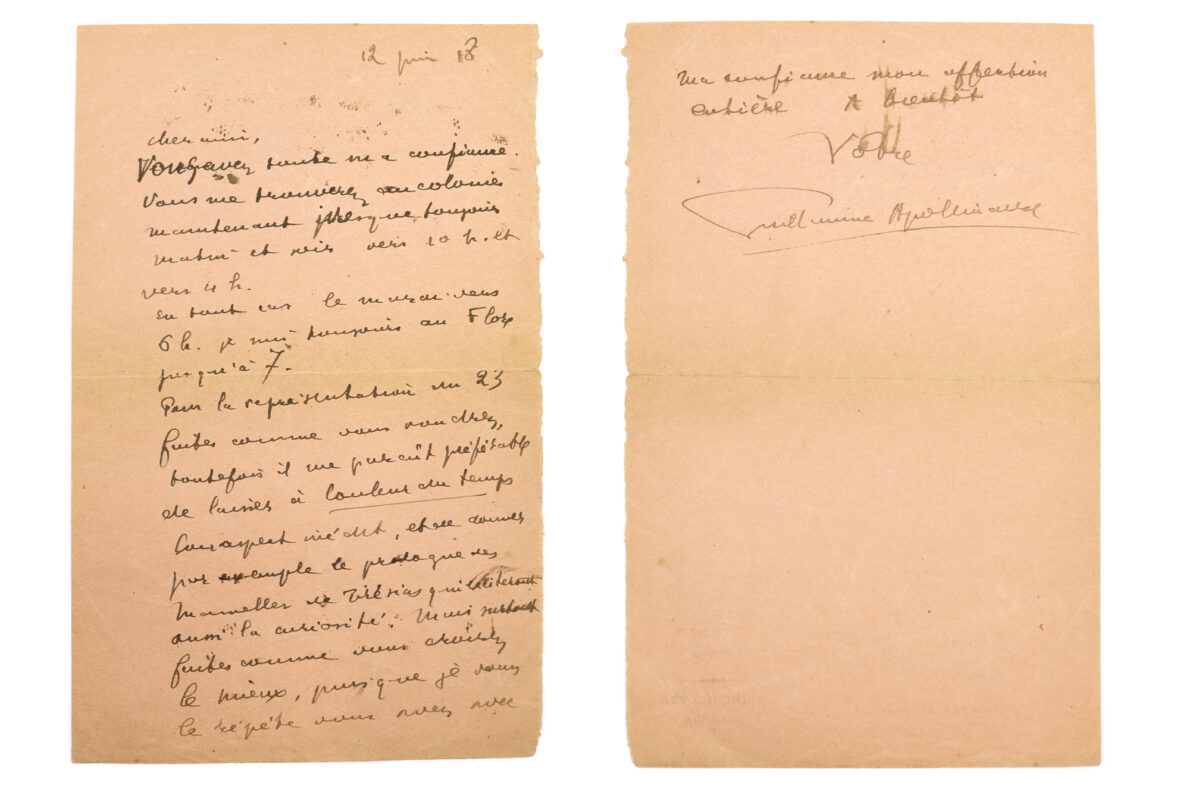 12 juin 18
cher ami,
Vous avez toute ma confiance.
Vous me trouverez aux colonies
maintenant presque toujours
matin et soir vers 10 h. et
vers 4 h.
En tout cas le mardi vers
6 h. je suis toujours au Flore
jusqu'à 7.
Pour la représentation du 23
faites comme vous voudrez,
toutefois il me paraît préférable
de laisser à Couleur du temps
son aspect inédit, et de donner
par exemple le prologue des
Mamelles de Tirésias qui exciteront
aussi la curiosité. Mais surtout
faites comme vous croirez
le mieux, puisque je vous
le répète vous avez avec
ma confiance mon affection
entière A bientôt
Votre
Guillaume Apollinaire